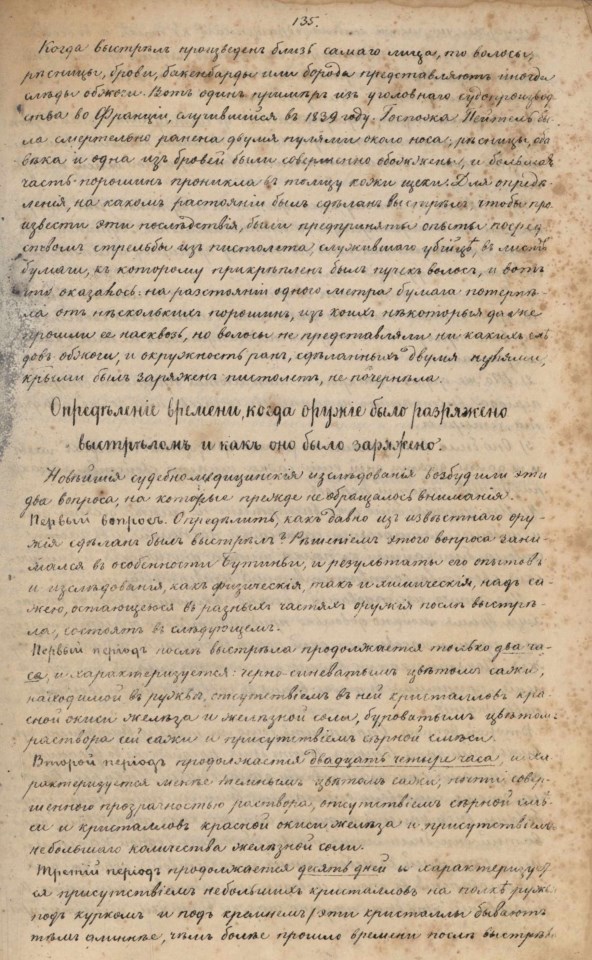 135.
Когда выстрѣлъ произведенъ близь самаго лица, то волосы,
рѣсницы, брови, бакенбарды или борода представляютъ иногда
слѣды обжоги. Вотъ одинъ примѣръ изъ уголовнаго судопроизвод-
ства во Франціи, случившійся въ 1839 году: Госпожа Пейтель бы-
ла смертельно ранена двумя пулями около носа; рѣсницы, оба
вѣка и одна изъ бровей были совершенно обожжены, и большая
часть порошинъ проникла въ толщу кожи щеки. Для опредѣ-
ленія, на какомъ растояніи былъ сдѣланъ выстрѣлъ, чтобы про-
извести эти послѣдствія, были предприняты опыты посред-
ствомъ стрельбы изъ пистолета, служившаго убійцѣ, въ листъ
бумаги, къ которому прикрѣпленъ былъ пучекъ волосъ, и вотъ
что оказалось: на разстояніи одного метра бумага потерпѣ-
ла отъ нѣсколькихъ порошинъ, изъ коихъ нѣкоторыя даже
прошли ее насквозь, но волосы не представляли ни какихъ слѣ-
довъ обжоги, и окружность ранъ, сдѣланныхъ двумя пулями,
коими былъ заряженъ пистолетъ, не почернѣла.
Опредѣленіе времени, когда оружіе было разряжено
выстрѣломъ и какъ оно было заряжено.
Новѣйшія судебномедицинскія изслѣдованія возбудили эти
два вопроса, на которые прежде не обращалось вниманія.
Первый вопросъ. Опредѣлить, какъ давно изъ извѣстнаго ору-
жія сдѣланъ былъ выстрѣлъ? Рѣшеніемъ этого вопроса зани-
мался въ особенности Бутиньи, и результаты его опытовъ
и изслѣдованія, какъ физическія, такъ и химическія, надъ са-
жею, остающеюся въ разныхъ частяхъ оружія послѣ выстрѣ-
ла, состоятъ въ слѣдующемъ:
Первый періодъ послѣ выстрѣла продолжается только два ча-
са, и характеризуется: черно-синеватымъ цвѣтомъ сажи,
находимой въ ружьѣ, отсутствіемъ въ ней кристалловъ кра-
сной окиси желѣза и желѣзной соли, буроватымъ цвѣтомъ
раствора сей сажи и присутствіемъ сѣрной смѣси.
Второй періодъ продолжается двадцать четыре часа, и ха-
рактеризуется менѣе темнымъ цвѣтомъ сажи, почти совер-
шенною прозрачностью раствора, отсутствіемъ сѣрной смѣ-
си и кристалловъ красной окиси желѣза и присутствіемъ
небольшаго количества желѣзной соли.
Третій періодъ продолжается десять дней и характеризует-
ся присутствіемъ небольшихъ кристалловъ на полкѣ ружья
подъ куркомъ и подъ кремнемъ (эти кристаллы бываютъ
тѣмъ длиннѣе, чѣмъ болѣе прошло времени послѣ выстрѣла